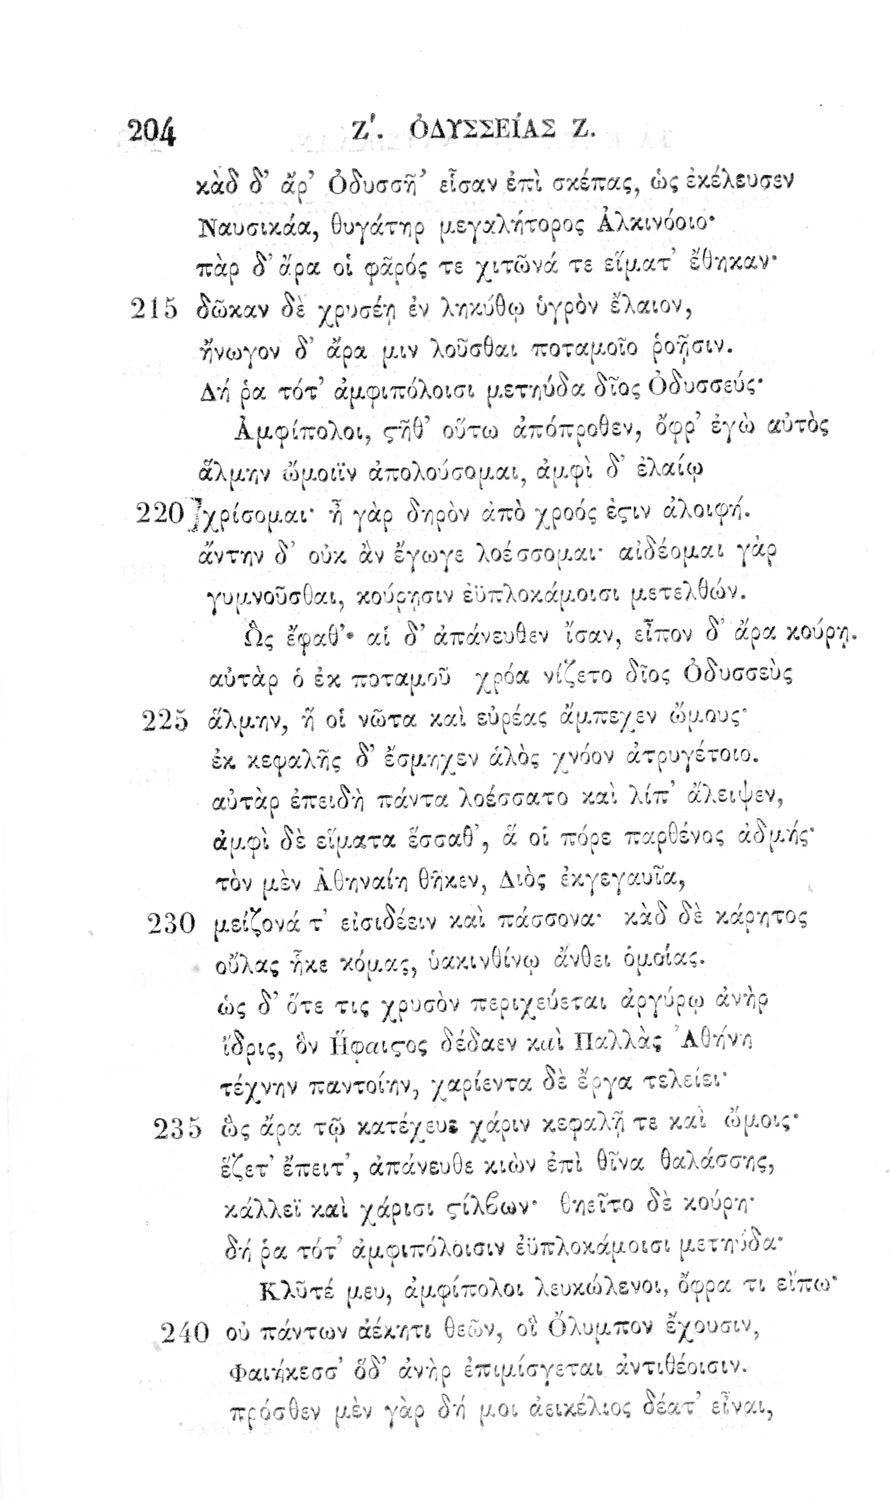 204 Ζʹ. ὈΔΥΣΣΕΊΑΣ Ζ.
κὰδ δ’ ἄρ’ Ὀδυσσῆ’ εἷσαν ἐπὶ σκέπας, ὡς ἐκέλευσεν
Ναυσικάα, θυγάτηρ μεγαλήτορος Ἀλκινόοιο·
πὰρ δ’ ἄρα οἱ φᾶρός τε χιτῶνά τε εἵματ’ ἔθηκαν·
215 δῶκαν δὲ χρυσέῃ ἐν ληκύθῳ ὑγρὸν ἔλαιον,
ἤνωγον δ’ ἄρα μιν λοῦσθαι ποταμοῖο ῥοῇσιν.
Δή ῥα τότ’ ἀμφιπόλοισι μετηύδα δῖος Ὀδυσσεύς·
Ἀμφίπολοι, ϛῆθ’ οὕτω ἀπόπροθεν, ὄφρ’ ἐγὼ αὐτὸς
ἅλμην ὤμοιϊν ἀπολούσομαι, ἀμφὶ δ’ ἐλαίῳ
220 χρίσομαι· ἦ γὰρ δηρὸν ἀπὸ χροός ἐϛιν ἀλοιφή.
ἄντην δ’ οὐκ ἂν ἔγωγε λοέσσομαι· αἰδέομαι γὰρ
γυμνοῦσθαι, κούρῃσιν ἐϋπλοκάμοισι μετελθών.
Ὣς ἔφαθ’· αἱ δ’ ἀπάνευθεν ἴσαν, εἶπον δ’ ἄρα κούρῃ.
αὐτὰρ ὁ ἐκ ποταμοῦ χρόα νίζετο δῖος Ὀδυσσεὺς
225 ἅλμην, ἥ οἱ νῶτα καὶ εὐρέας ἄμπεχεν ὤμους·
ἐκ κεφαλῆς δ’ ἔσμηχεν ἁλὸς χνόον ἀτρυγέτοιο.
αὐτὰρ ἐπειδὴ πάντα λοέσσατο καὶ λίπ’ ἄλειψεν,
ἀμφὶ δὲ εἵματα ἕσσαθ’, ἅ οἱ πόρε παρθένος ἀδμής·
τὸν μὲν Ἀθηναίη θῆκεν, Διὸς ἐκγεγαυῖα,
230 μείζονά τ’ εἰσιδέειν καὶ πάσσονα· κὰδ δὲ κάρητος
οὔλας ἧκε κόμας, ὑακινθίνῳ ἄνθει ὁμοίας.
ὡς δ’ ὅτε τις χρυσὸν περιχεύεται ἀργύρῳ ἀνὴρ
ἴδρις, ὃν Ἥφαιϛος δέδαεν καὶ Παλλὰς Ἀθήνη
τέχνην παντοίην, χαρίεντα δὲ ἔργα τελείει·
235 ὣς ἄρα τῷ κατέχευε χάριν κεφαλῇ τε καὶ ὤμοις·
ἕζετ’ ἔπειτ’, ἀπάνευθε κιὼν ἐπὶ θῖνα θαλάσσης,
κάλλεϊ καὶ χάρισι ϛίλϐων· θηεῖτο δὲ κούρη·
δή ῥα τότ’ ἀμφιπόλοισιν ἐϋπλοκάμοισι μετηύδα·
Κλῦτέ μευ, ἀμφίπολοι λευκώλενοι, ὄφρα τι εἴπω·
240 οὐ πάντων ἀέκητι θεῶν, οἳ Ὄλυμπον ἔχουσιν,
Φαιήκεσσ’ ὅδ’ ἀνὴρ ἐπιμίσγεται ἀντιθέοισιν.
πρόσθεν μὲν γὰρ δή μοι ἀεικέλιος δέατ’ εἶναι,